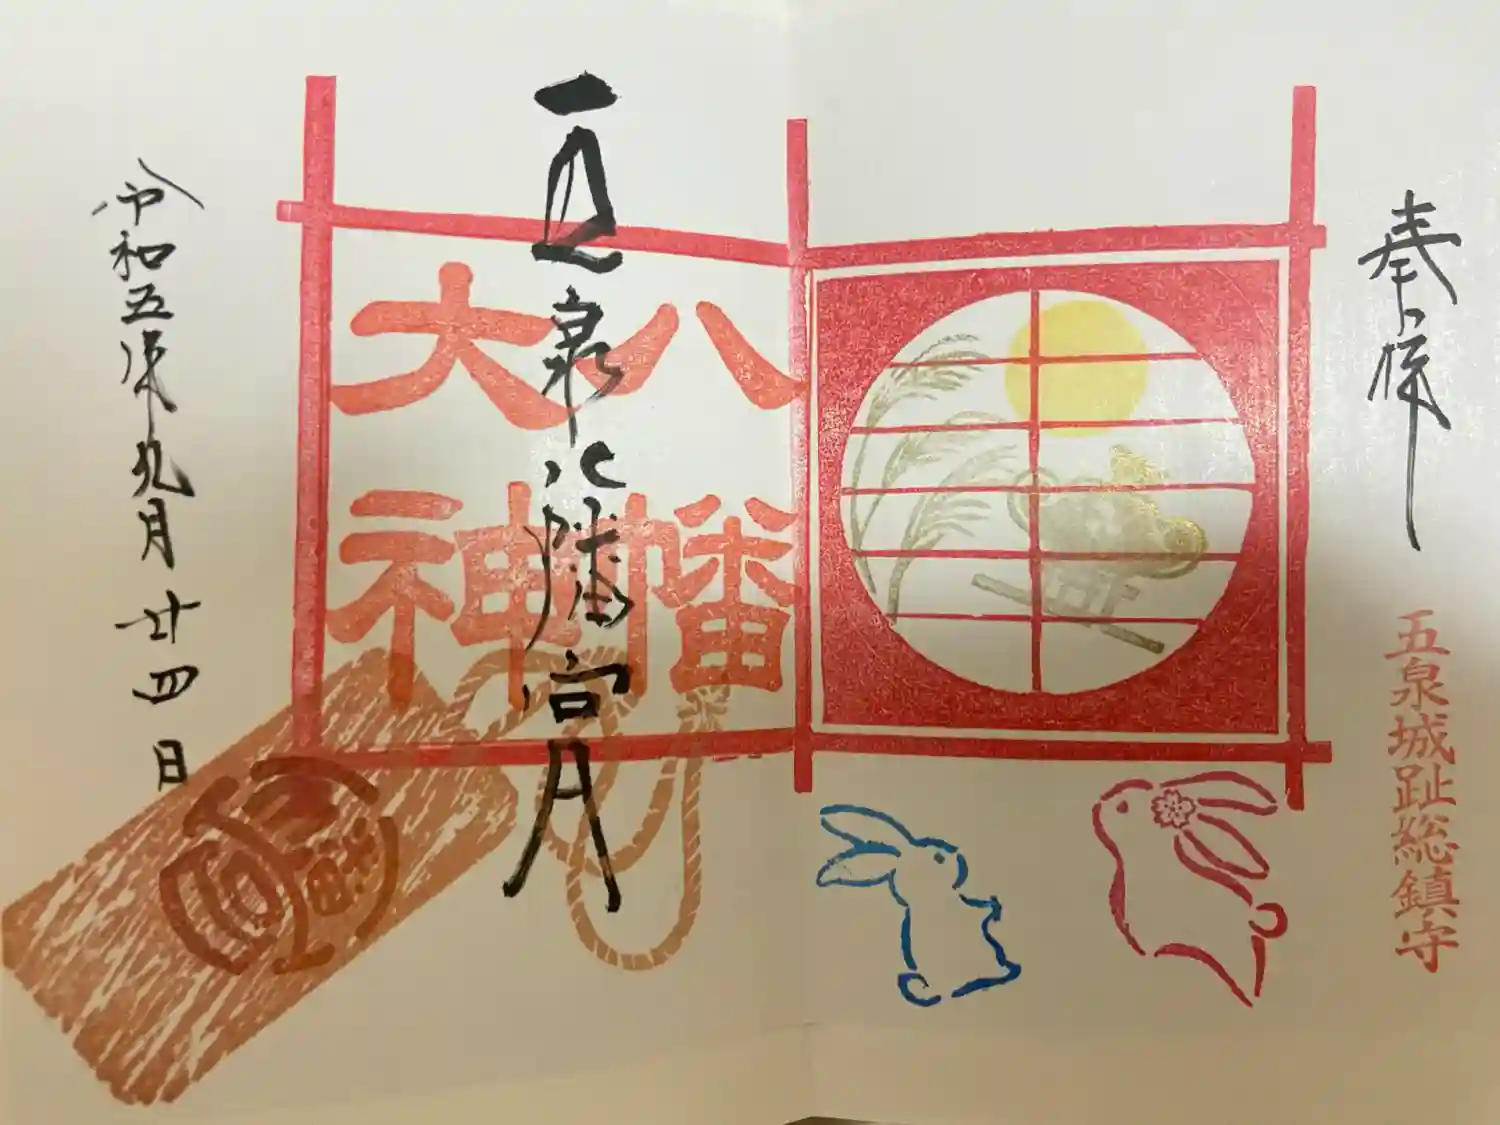 奉拝
五泉城趾総鎮守
八幡
大神
五泉八幡宮
令和五年九月廿四日